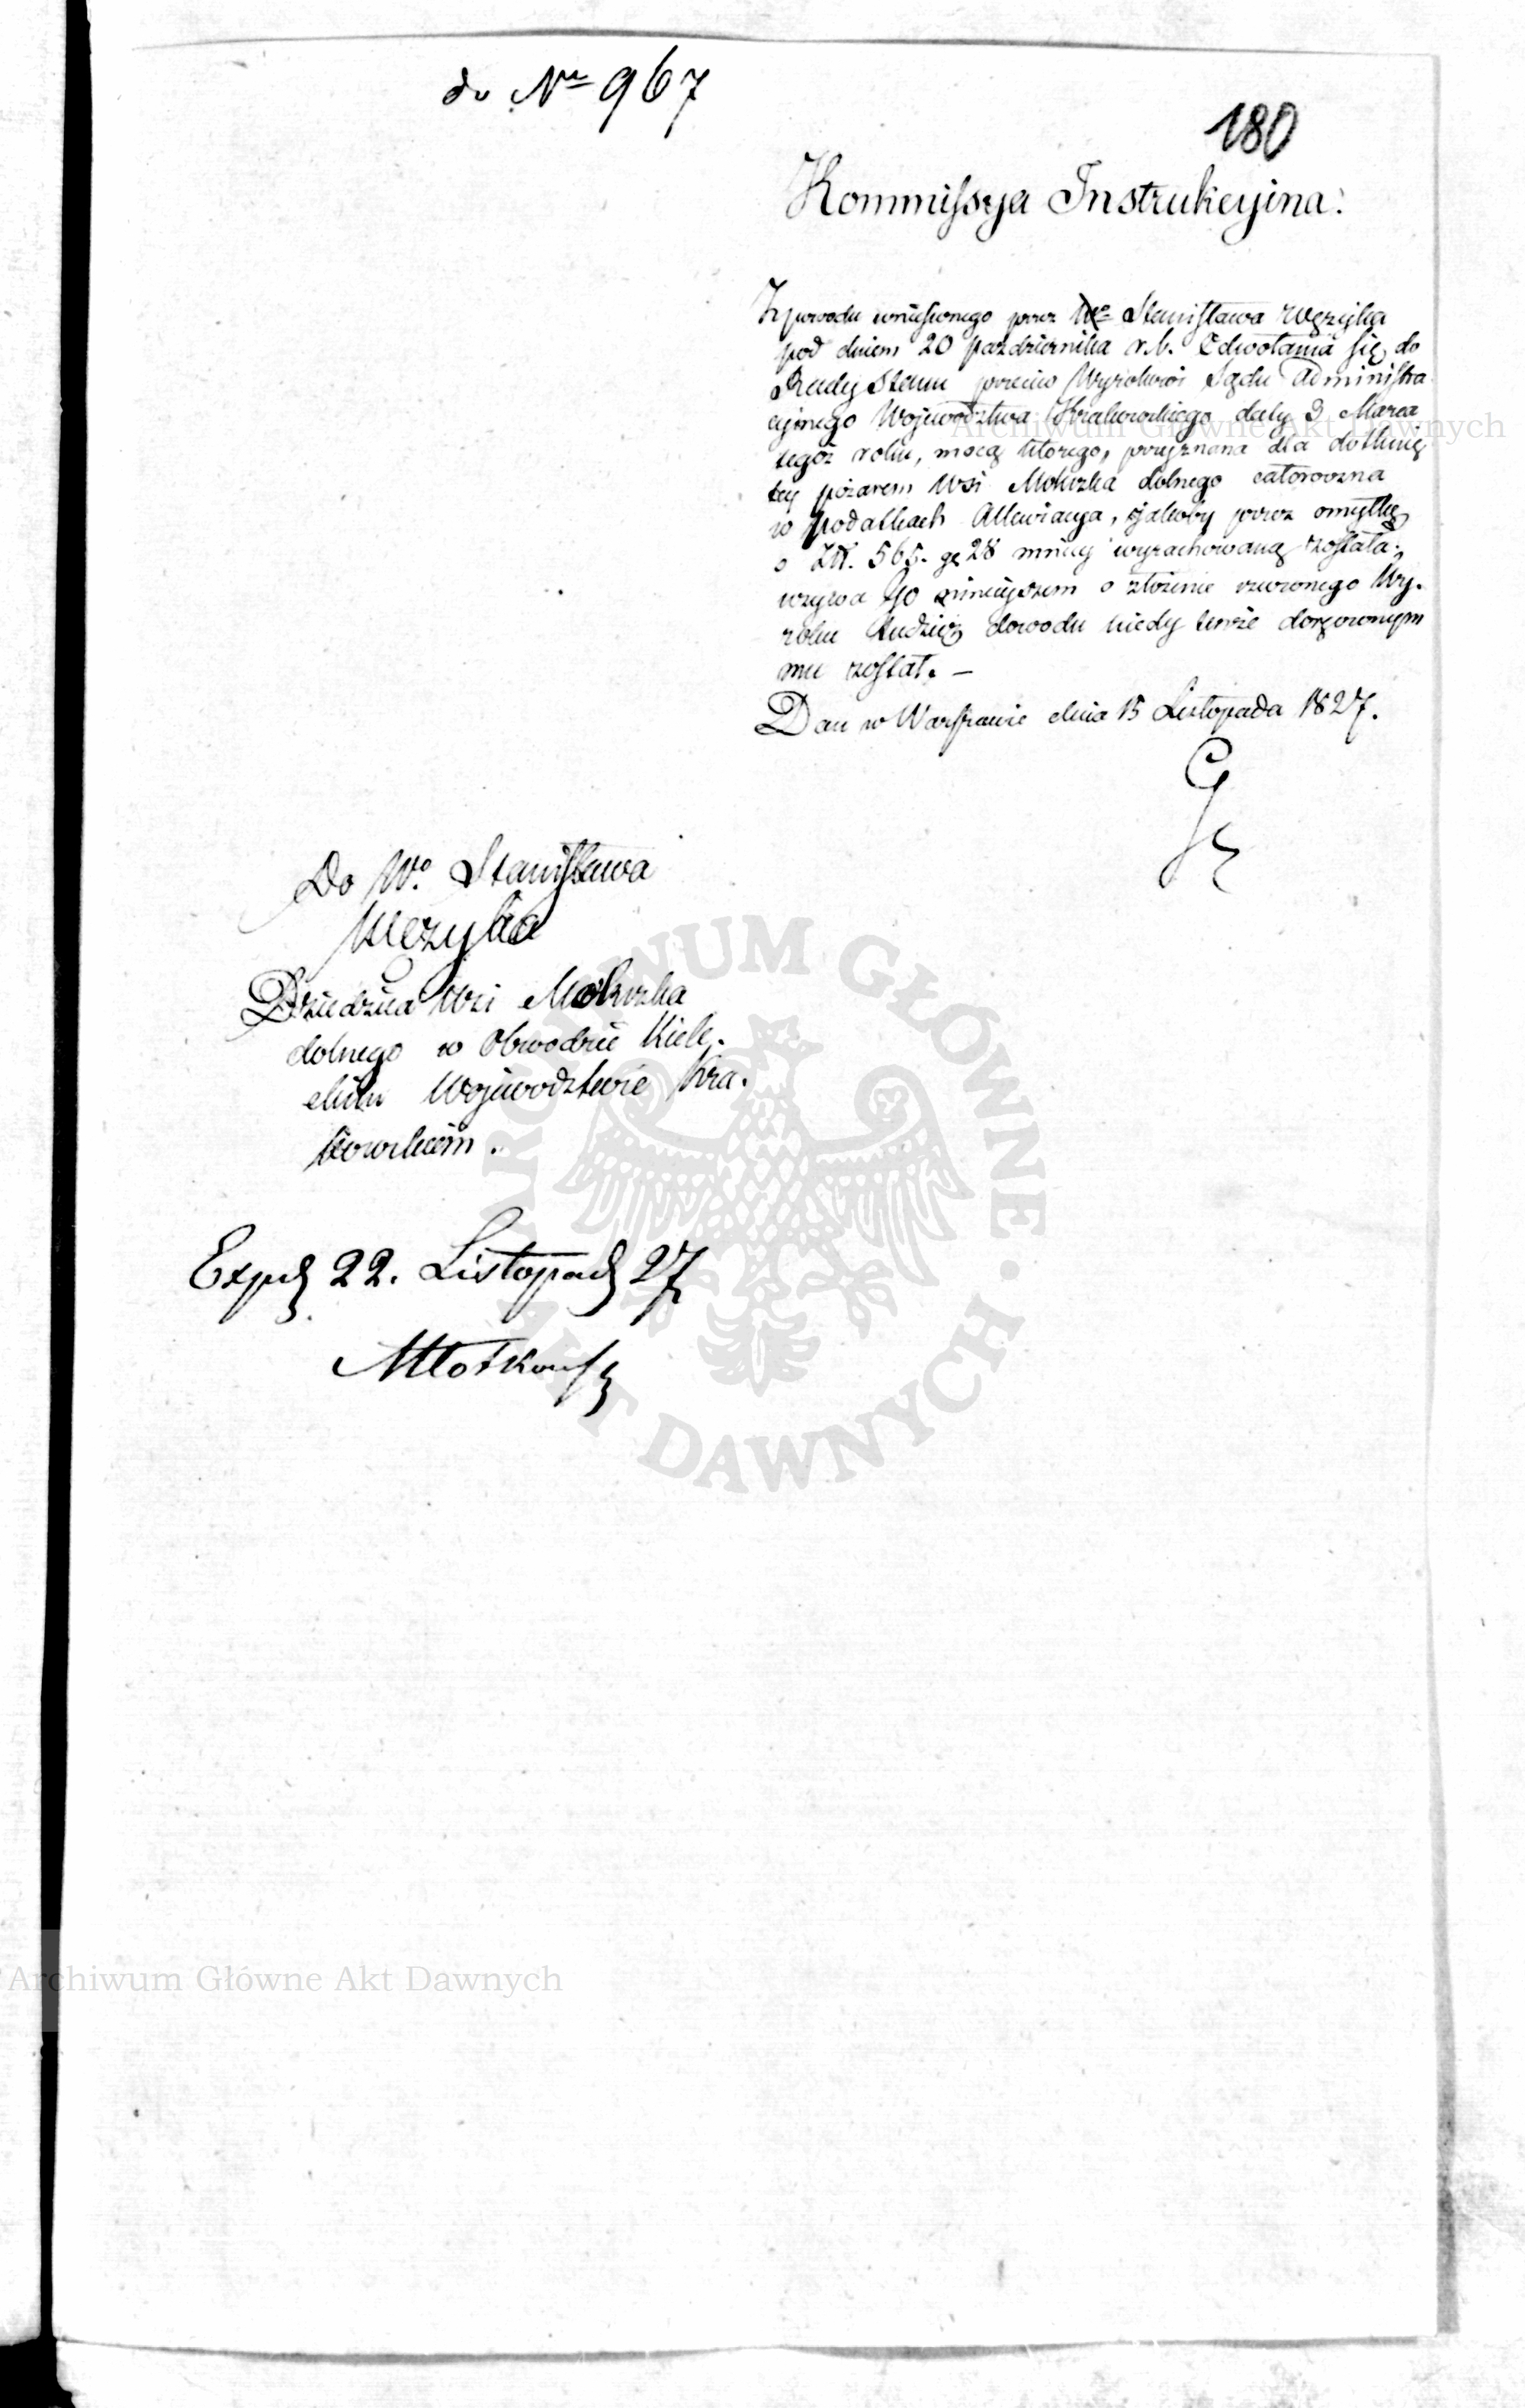 do Nru 967
180
Kommissya Instrukcyina.
Z powodu wniesionego przez Wgo Stanisława Wężyka
pod dniem 20 Października r.b. Odwołania się do
Rady Stanu przeciw Wyrokowi Sądu Administra
cyjnego Województwa Krakowskiego daty 3 Marca
tegoż roku, mocą którego, przyznana dla dotknię
tey pożarem Wsi Mokrzka dolnego całoroczna
w podatkach Allewiacya, jakoby przez omyłkę
o Złł. 565. gr 28 mniey wyrachowaną została;
wzywa go ninieyszem o złożenie rzeczonego Wy.
roku tudzież dowodu kiedy tenże doręczonym
mu został. —
Dan w Warszawie dnia 15 Listopada 1827.
Do Wo. Stanisława
Wężyka
Dziedzica Wsi Mokrzka
dolnego w Obwodzie Kiele.
ckim Województwie Kra.
kowskiem.
Expd 22. Listopad 27
Młotkows
Archiwum Główne Akt Dawnych
ARCHIWUM GŁÓWNE AKT DAWNYCH
Archiwum Główne Akt Dawnych